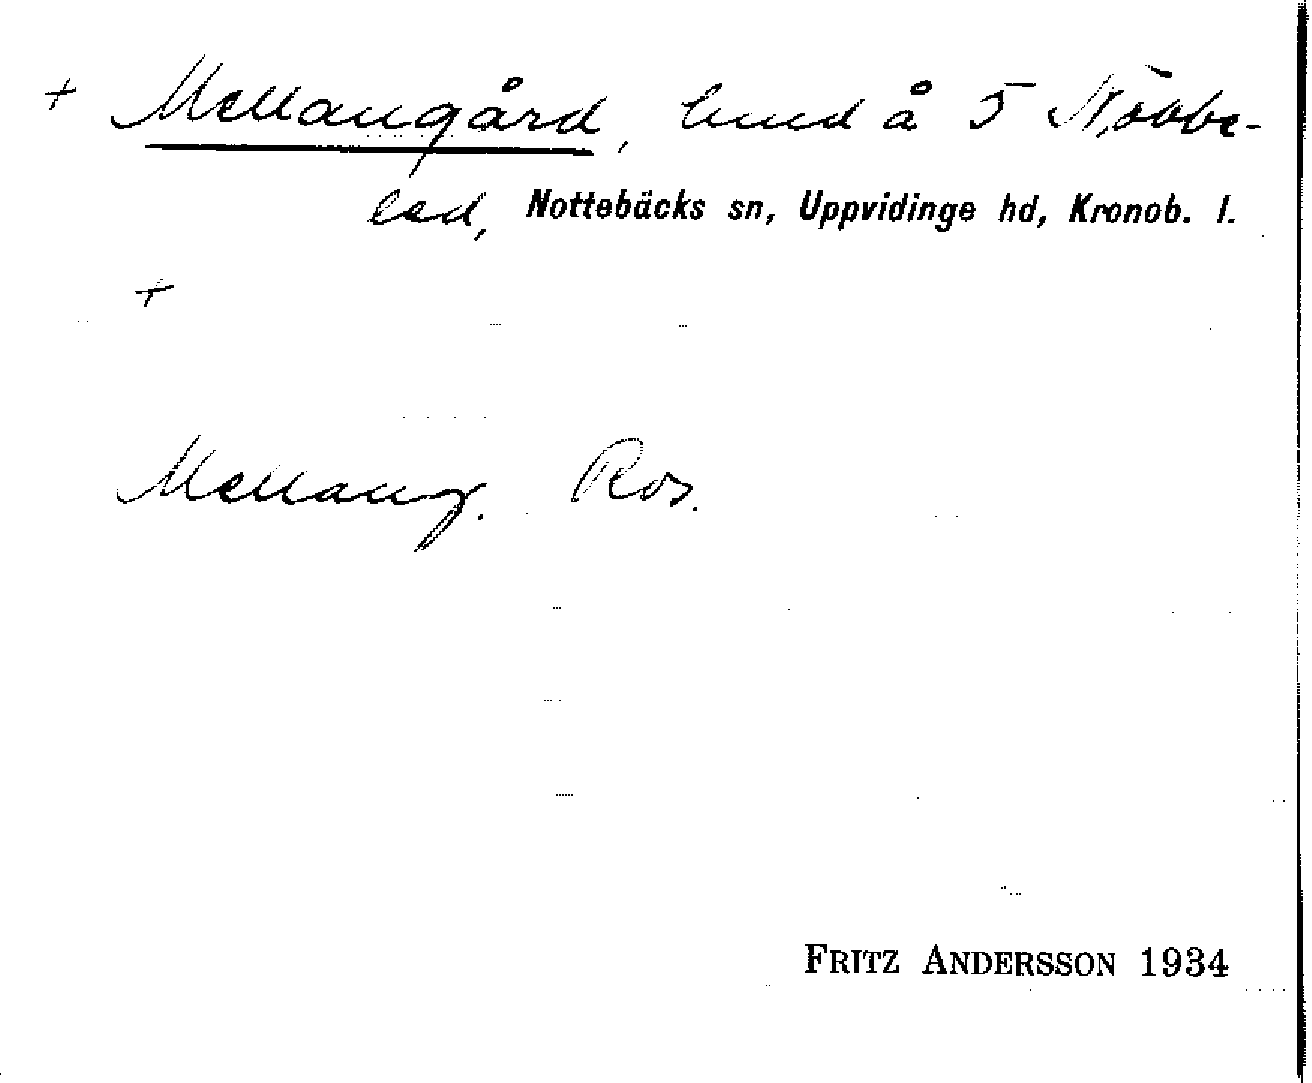 + Mellangård, hmd å 5 Nöbbe-
led, Nottebäcks sn, Uppvidinge hd, Kronob. l.
+
Mellang. Ros.
FRITZ ANDERSSON 1934